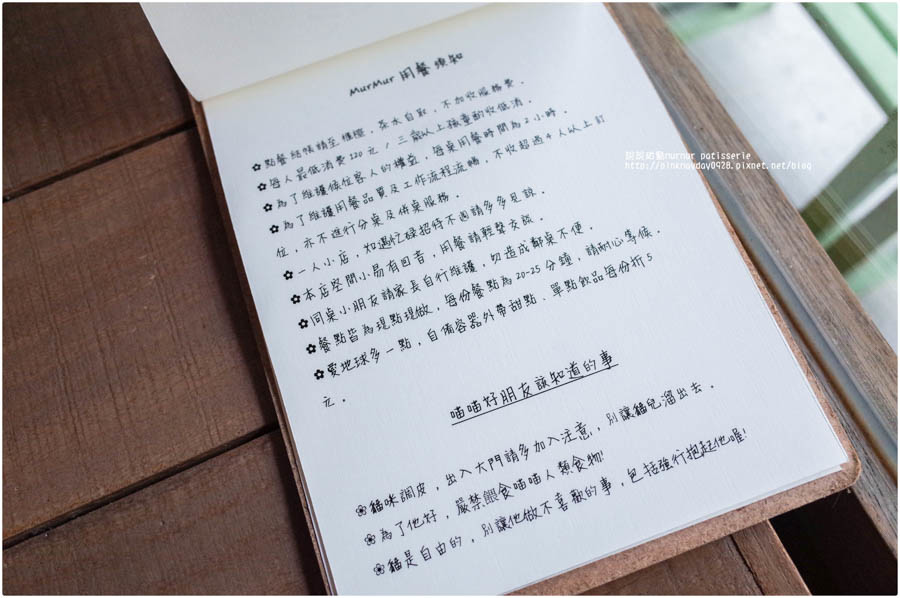 MurMur 用餐須知
✿點餐結帳請至櫃檯，茶水自取，不加收服務費。
✿每人最低消費120元／三歲以上孩童酌收低消。
✿為了維護候位客人的權益，每桌用餐時間為2小時。
✿為了維護用餐品質及工作流程流暢，不收超過4人以上訂
位，亦不進行分桌及併桌服務。
✿一人小店，如遇忙碌招待不週請多多見諒。
✿本店空間小易有回音，用餐請輕聲交談。
✿同桌小朋友請家長自行維護，勿造成鄰桌不便。
✿餐點皆為現點現做，每份餐點為20-25分鐘，請耐心等候。
✿愛地球多一點，自備容器外帶甜點、單點飲品每份折5
元。
喵喵好朋友該知道的事
❀貓咪調皮，出入大門請多加入注意，別讓貓兒溜出去。
❀為了他好，嚴禁餵食喵喵人類食物!
❀貓是自由的，別讓他做不喜歡的事，包括強行抱起他喔!
說說幼勤murmur patisserie
http://pinknayday0928.pixnet.net/blog